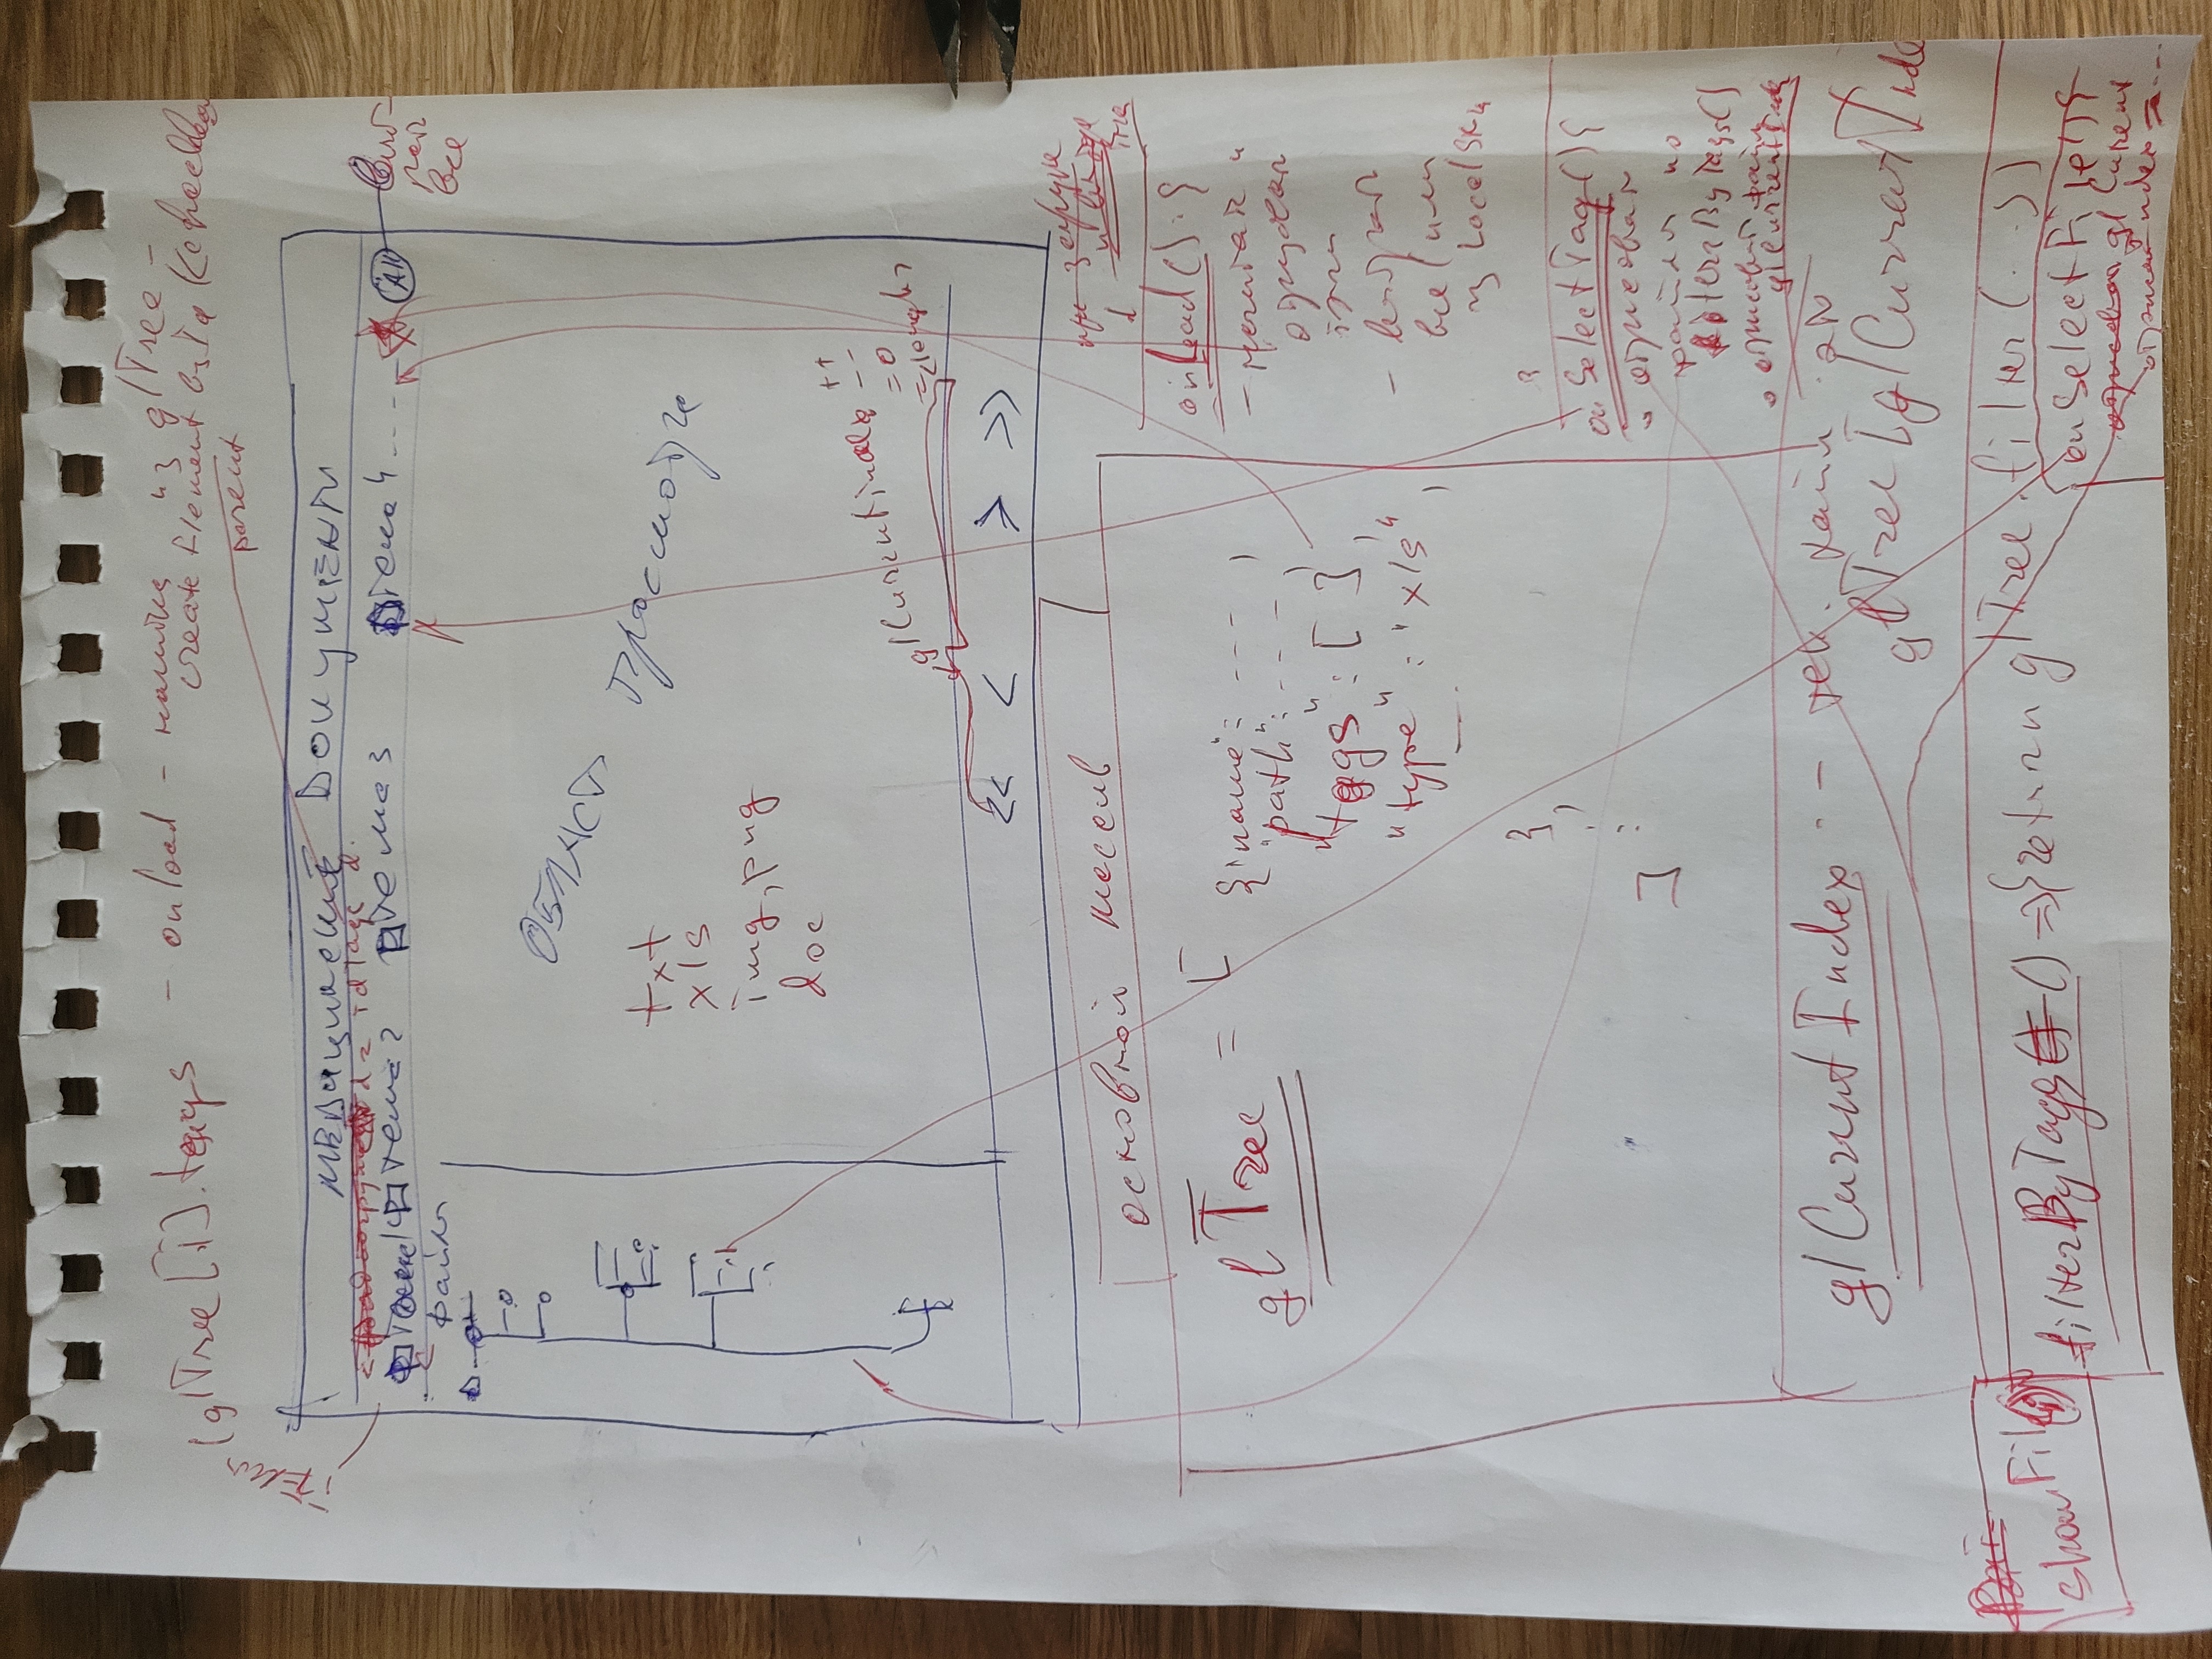 (glTree[i].tags - onload - из glTree -
create Element by Id (checkbox
parent
Медицинские документы
d = idTags d.
тема 2 тема 3 тема 4 .... All
выб-
рать
все
файлы
область просмотра
txt
xls
img, png
doc
glCurrentindex ++
--
=0
=length
<< < > >>
основной массив
glTree = [ {"name": ---- ,
"path": - - - - ,
"tags": [ ],
"type": "xls",
},
:
]
при загрузке
onLoad() : {
- прочитать и
отрисовать
тэги
- выбрать
все (или
из Local
onSelectTag() {
• отрисовать
файлы по
filterByTags()
• отрисовать файл
glCurrentIndex
glCurrentIndex -- тек. файл
glTree[glCurrentInde
showFile()
filterByTags () => {return glTree.filter(...)}
onSelectFile(){
отрисовать glCurrent
index = ...